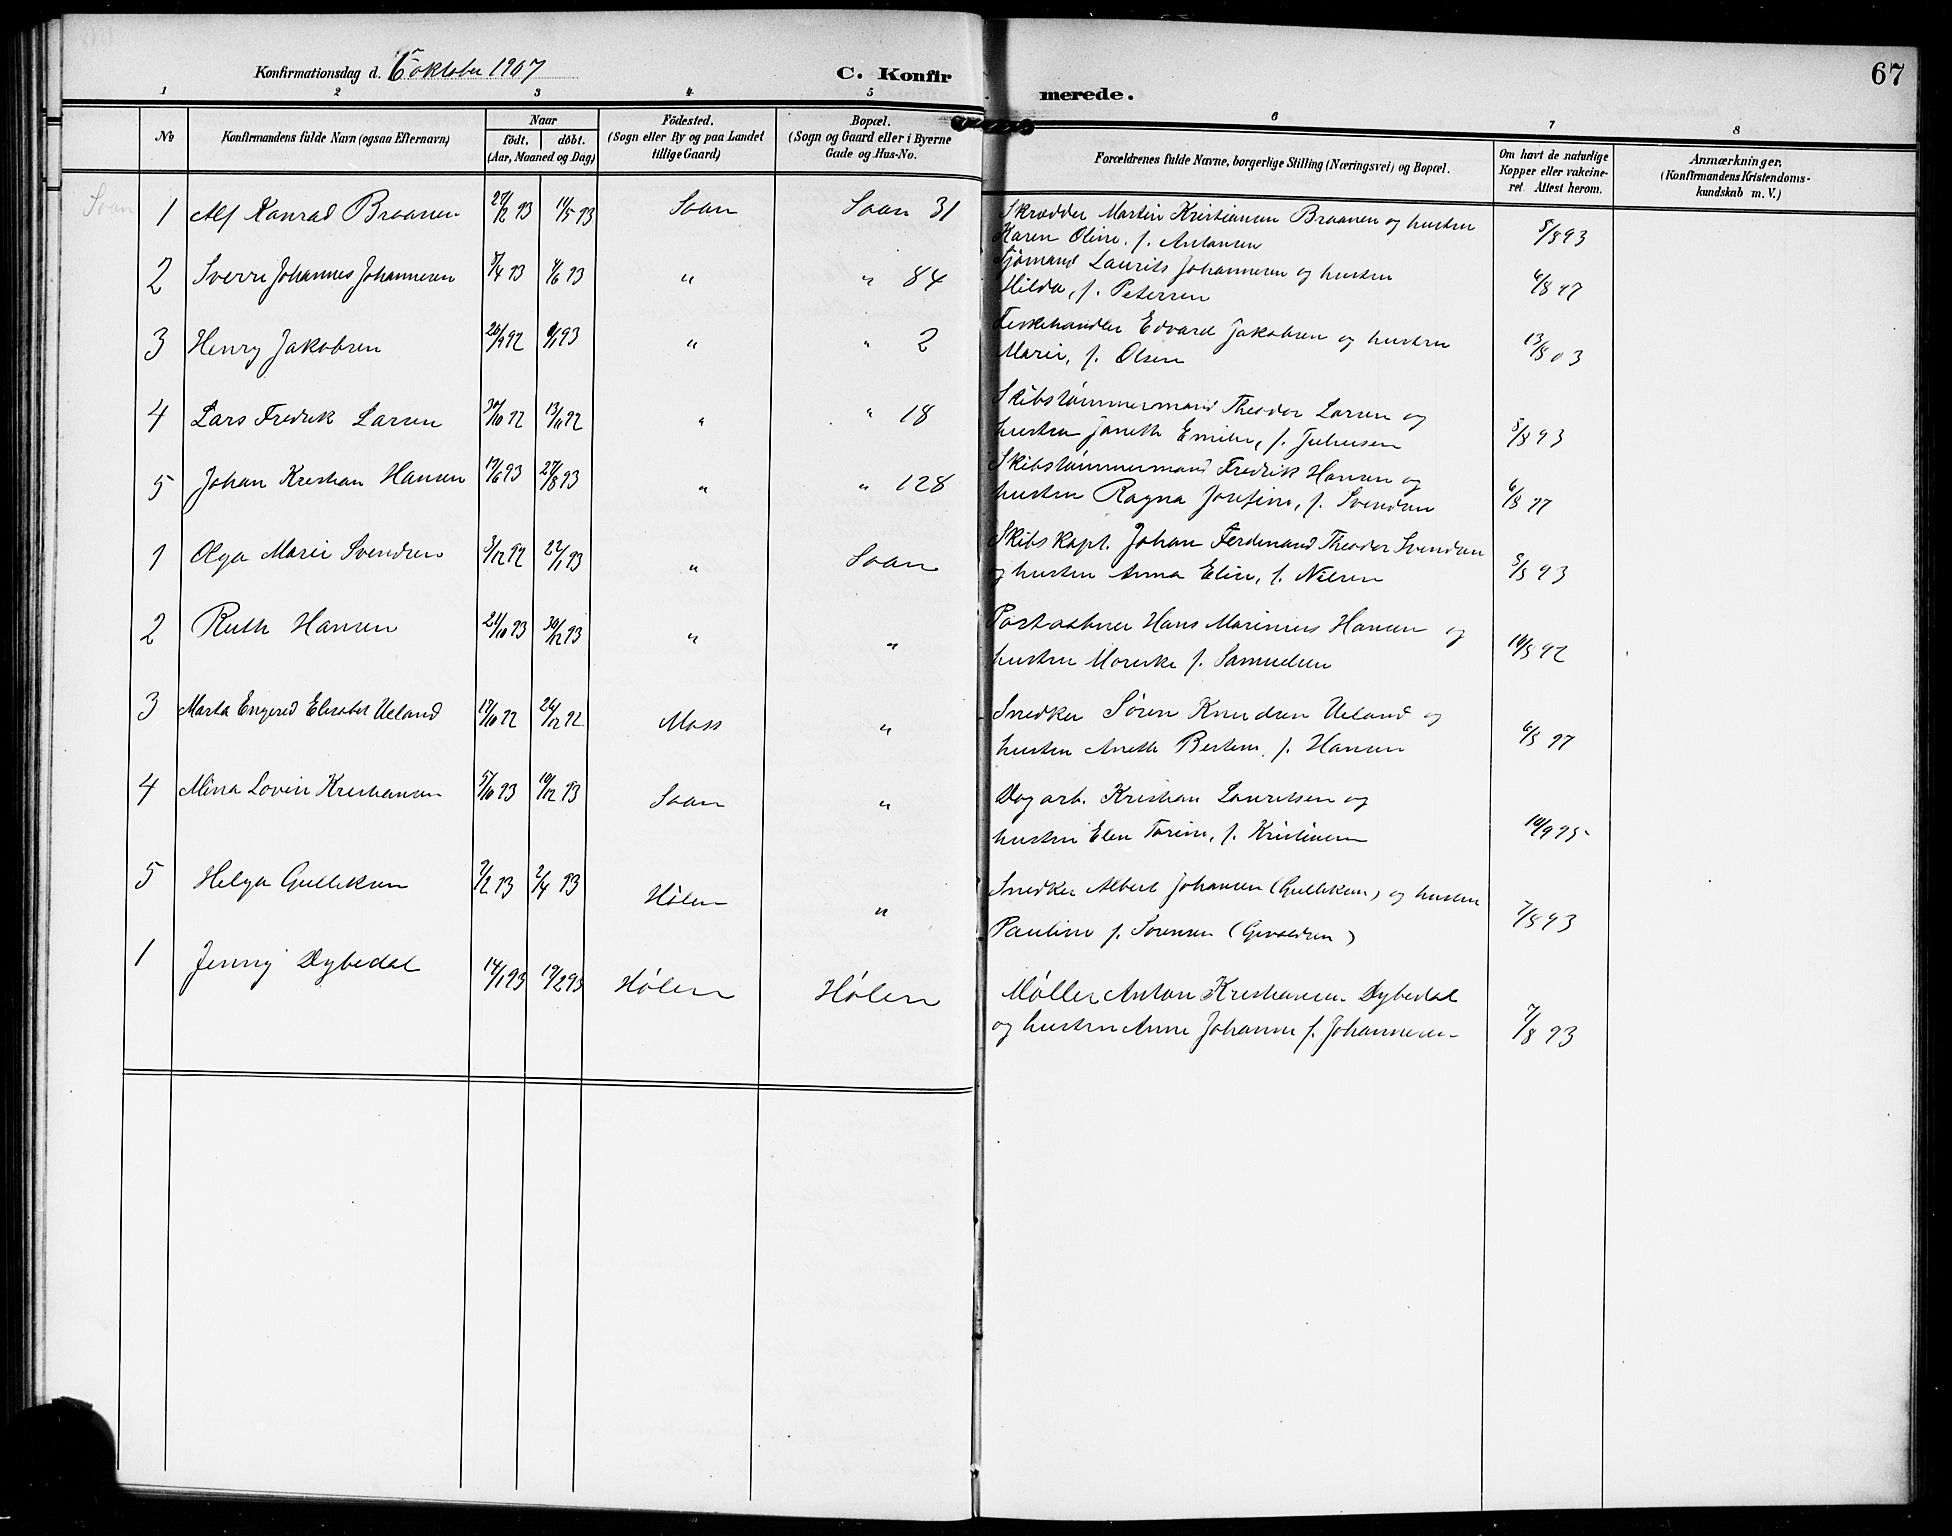 67
Konfirmationsdag d. 6 oktober 1907
C. Konfirmerede.
1 2 3 4 5 6 7 8
№
Konfirmandens fulde Navn (ogsaa Efternavn)
Naar
født. døbt.
(Aar, Maaned og Dag)
Fødested.
(Sogn eller By og paa Landet
tillige Gaard)
Bopæl.
(Sogn og Gaard eller i Byerne
Gade og Hus-No.
Forældrenes fulde Navne, borgerlige Stilling (Næringsvei) og Bopæl.
Om havt de naturlige
Kopper eller vakcineret. Attest herom.
Anmærkninger,
(Konfirmandens Kristendomskundskab m. V.)
Soon
1 Alf Konrad Braanen 27/12 93 14/5 93 Soon Soon 31 Skrædder Martin Kristiansen Braanen og hustru
Karen Oline f. Antonsen 8/8 93
2 Sverre Johannes Johannesen 7/4 93 4/6 93 " " 84 Sjømand Laurits Johannesen og hustru
Hilda, f. Petersen 6/8 97
3 Henry Jakobsen 26/9 92 6/1 93 " " 2 Fiskehandler Edvard Jakobsen og hustru
Marie, f. Olsen 13/8 03
4 Lars Fredrik Larsen 30/10 92 13/11 92 " " 18 Skibstømmermand Theodor Larsen og
hustru Janeth Emilie, f. Juliusen 8/8 93
5 Johan Kristian Hansen 19/6 93 27/8 93 " " 128 Skibstømmermand Fredrik Hansen og
hustru Ragna Josefine, f. Svendsen 6/8 97
1 Olga Marie Svendsen 3/12 92 22/1 93 " Soon Skibskapt. Johan Ferdinand Theodor Svendsen
og hustru Anna Elise, f. Nilsen 8/8 93
2 Ruth Hansen 21/10 93 30/12 93 " " Postaabner Hans Marinius Hansen og
hustru f. Samuelsen
3 Marta Engered Elisabet Ueland 17/10 92 26/12 92 Moss " Snedker Søren Knudsen Ueland og
hustru Anette f. Hansen 6/8 97
4 Mina Lovise Kristiansen 5/10 93 10/12 93 Soon " Dagarb. Kristian Lauritsen og
hustru Elen Torine, f. Kristiansen 10/9 95
5 Helga Gulliksen 7/2 93 2/4 93 Hølen " Snedker Albert Johansen (Gulliksen) og hustru
Pauline f. Sørensen 7/8 93
1 Jenny Dybedal 14/1 93 19/2 93 Hølen Hølen Møller Anton Kristiansen Dybedal
og hustru Anne Johanne f. Johannesen 7/8 93